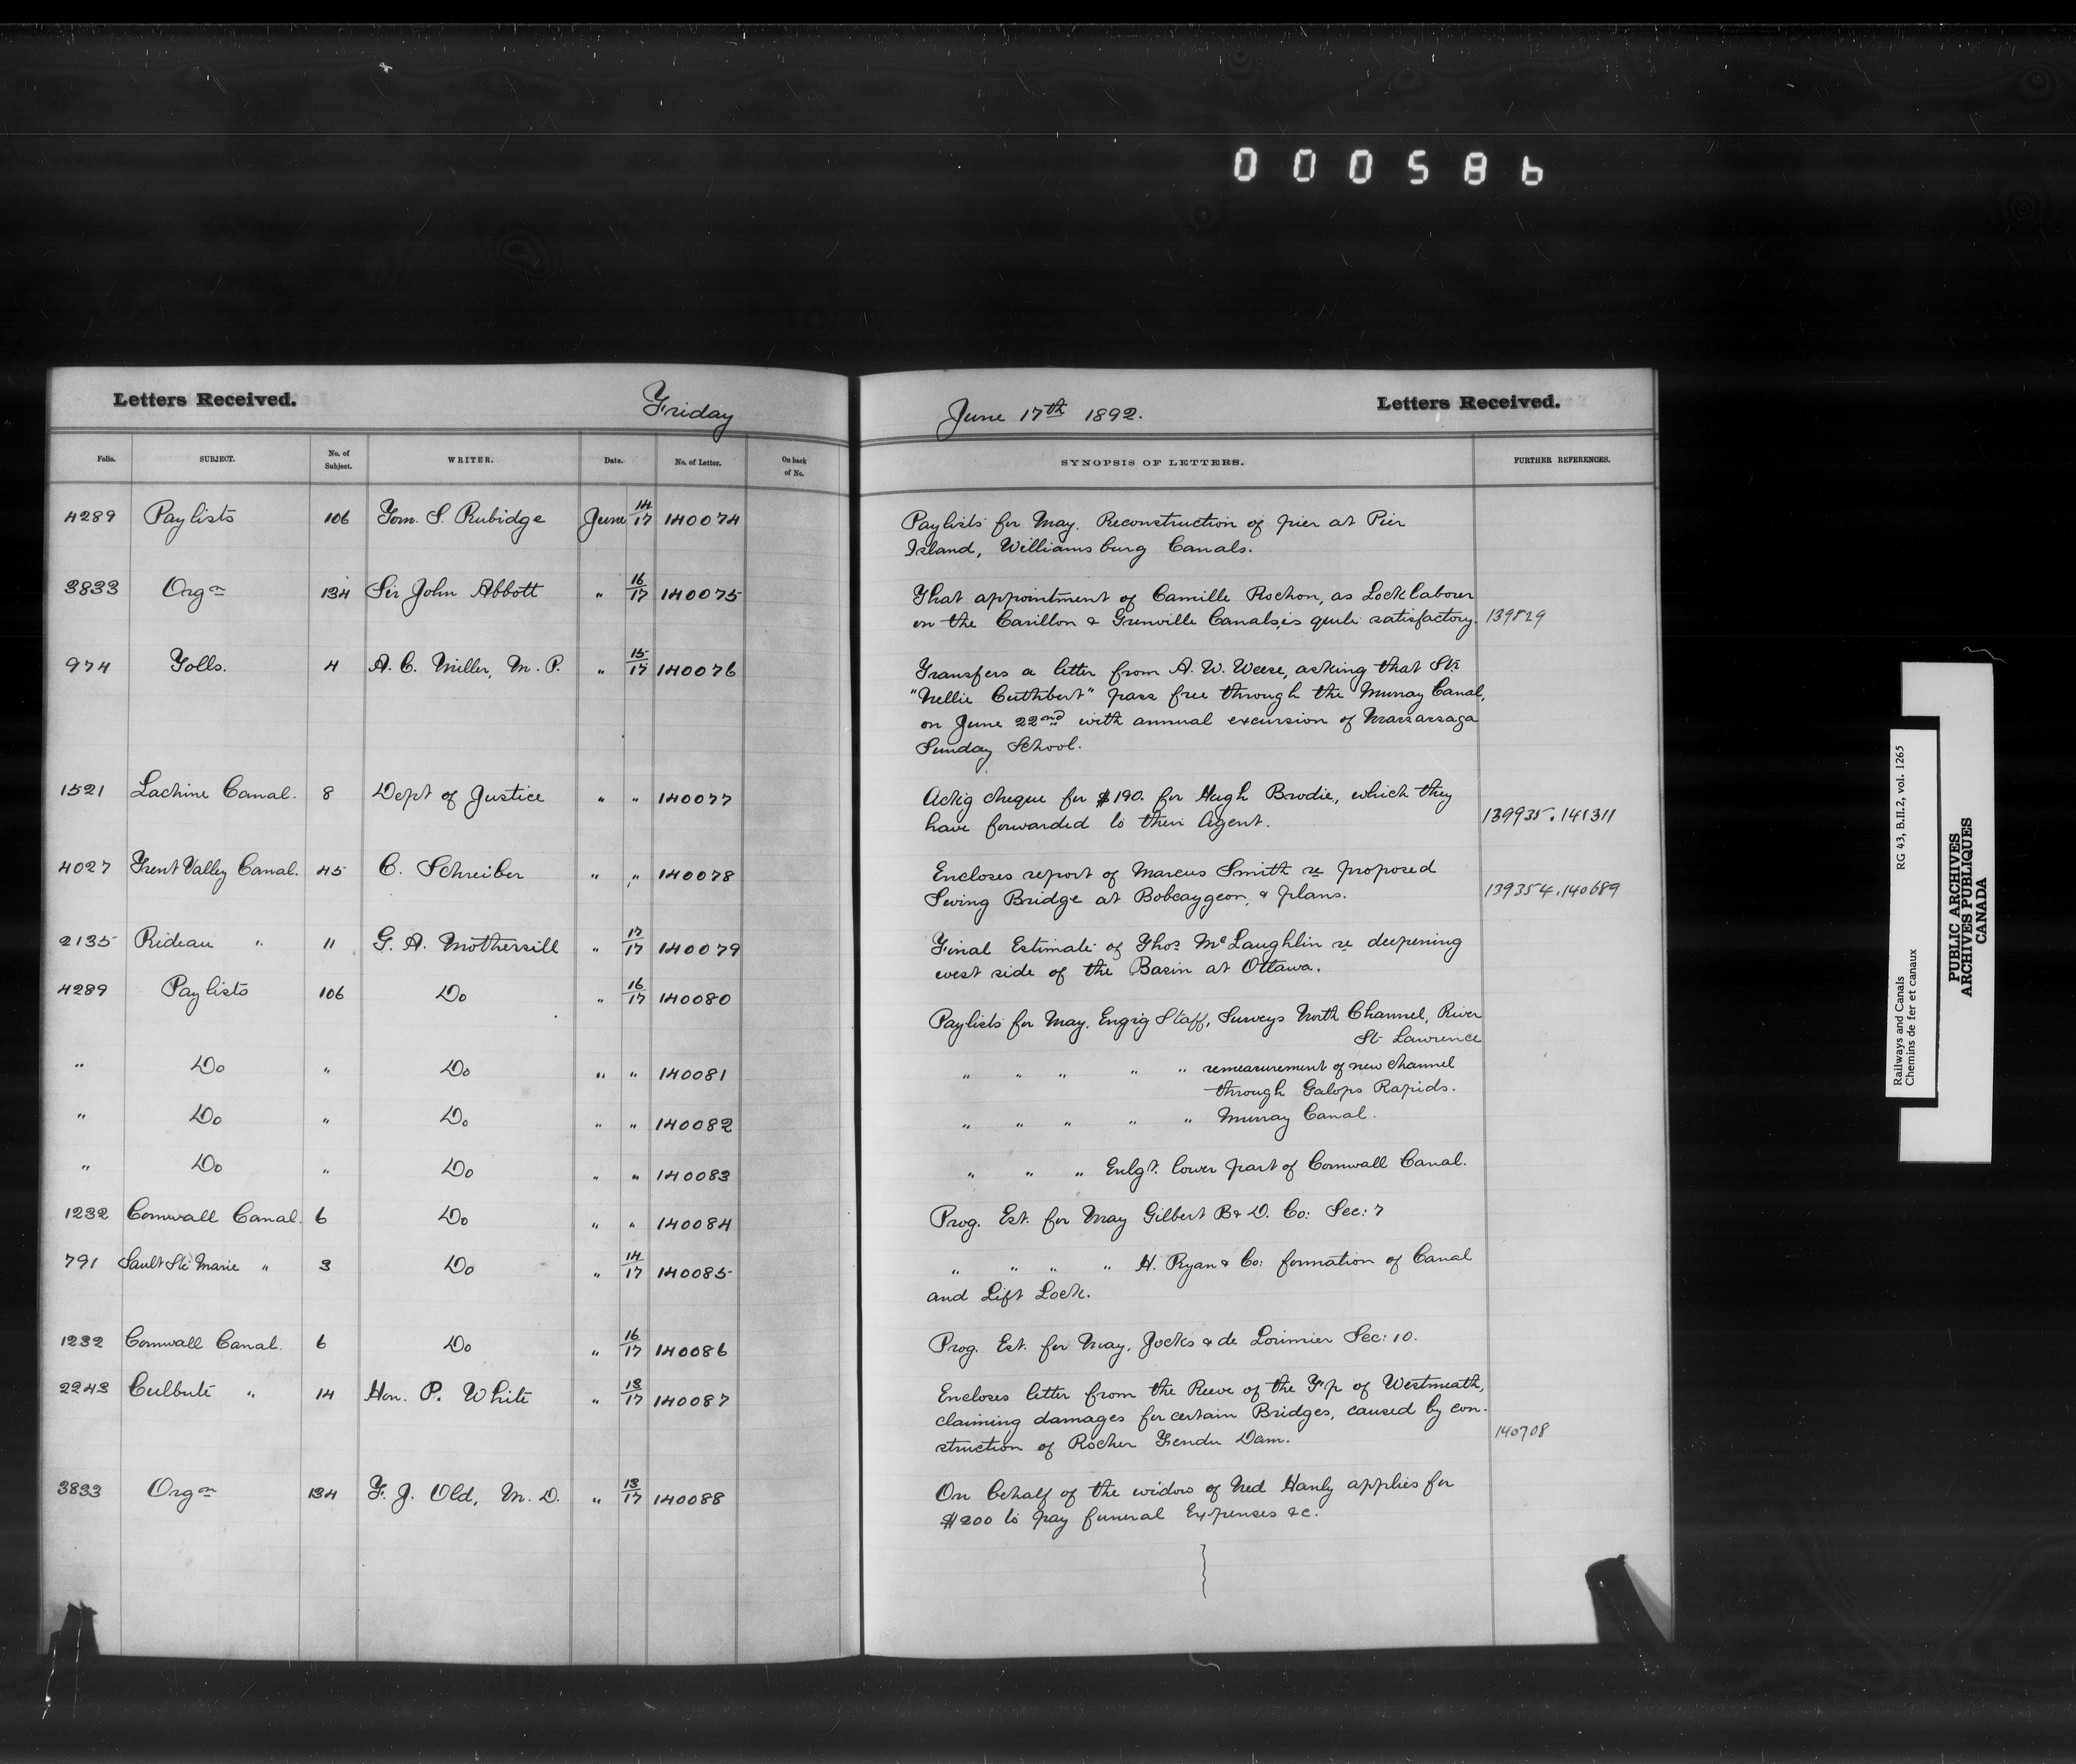 000586
Letters Received. Friday June 17th 1892. Letters Received.
Folio. SUBJECT. No. of Subject. WRITER. Date. No. of Letter. On back of No. SYNOPSIS OF LETTERS. FURTHER REFERENCES.
4289 Paylists 106 Tom. S. Rubidge June 14/17 140074 Paylists for May. Reconstruction of pier at Pier
Island, Williamsburg Canals.
3833 Orgn 134 Sir John Abbott " 16/17 140075 That appointment of Camille Rochon, as Lock labourer
on the Carillon & Grenville Canals, is quite satisfactory. 139829
974 Tolls. 4 A. C. Miller, M. P. " 15/17 140076 Transfers a letter from A. W. Weese, asking that Str
"Nellie Cuthbert" pass free through the Murray Canal,
on June 22nd with annual excursion of Massassaga
Sunday School.
1521 Lachine Canal. 8 Dept of Justice " " 140077 Ackg cheque for $190. for Hugh Brodie, which they
have forwarded to their Agent. 139935. 141311
4027 Trent Valley Canal. 45 C. Schreiber " " 140078 Encloses report of Marcus Smith re proposed
Swing Bridge at Bobcaygeon, & plans. 139354. 140689
2135 Rideau " 11 G. A. Mothersill " 17/17 140079 Final Estimate of Thos McLaughlin re deepening
west side of the Basin at Ottawa.
4289 Paylists 106 Do " 16/17 140080 Paylists for May. Engrg Staff, Surveys North Channel, River
St Lawrence
" Do " Do " " 140081 " " " " " remeasurement of new channel
through Galops Rapids.
" Do " Do " " 140082 " " " " " Murray Canal.
" Do " Do " " 140083 " " " Enlgt. lower part of Cornwall Canal.
1232 Cornwall Canal. 6 Do " " 140084 Prog. Est. for May Gilbert B & D. Co: Sec: 7
791 Sault Ste Marie " 3 Do " 14/17 140085 " " " " H. Ryan & Co: formation of Canal
and Lift Lock.
1232 Cornwall Canal. 6 Do " 16/17 140086 Prog. Est. for May, Jocks & de Lorimier Sec: 10.
2243 Culbute " 14 Hon. P. White " 13/17 140087 Encloses letter from the Reeve of the Tp of Westmeath,
claiming damages for certain Bridges, caused by con-
struction of Rocher Fendu Dam. 140708
3833 Orgn 134 F. J. Old, M. D. " 13/17 140088 On behalf of the widow of Ned Hanly applies for
$200 to pay funeral Expenses &c.
Railways and Canals RG 43, B.II.2, vol. 1265
Chemins de fer et canaux
PUBLIC ARCHIVES
ARCHIVES PUBLIQUES
CANADA